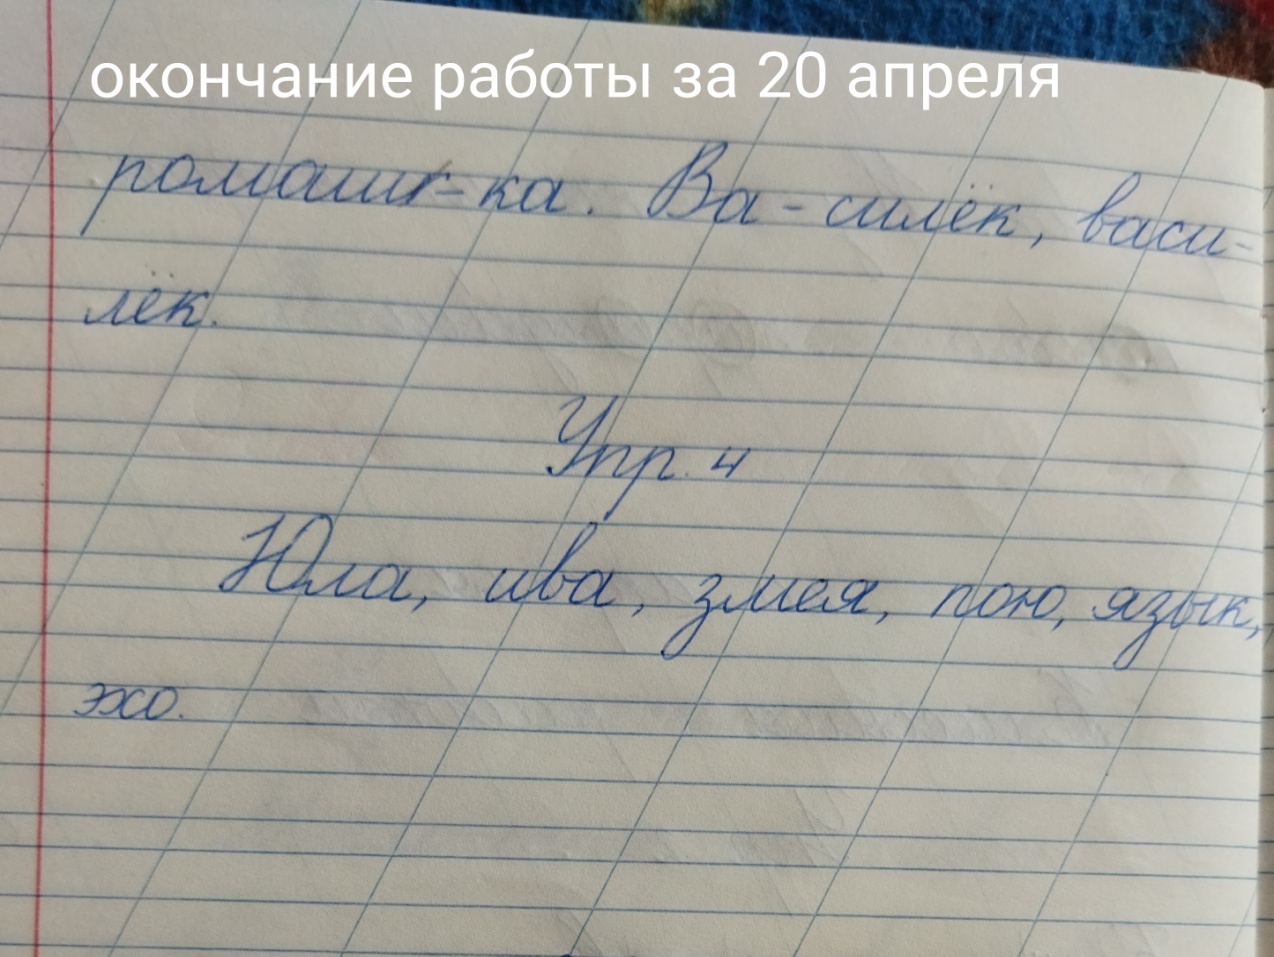 окончание работы за 20 апреля
ромаш-ка. Ва-силёк, васи-
лёк.
Упр. 4
Юла, ива, змея, пою, язык,
эхо.